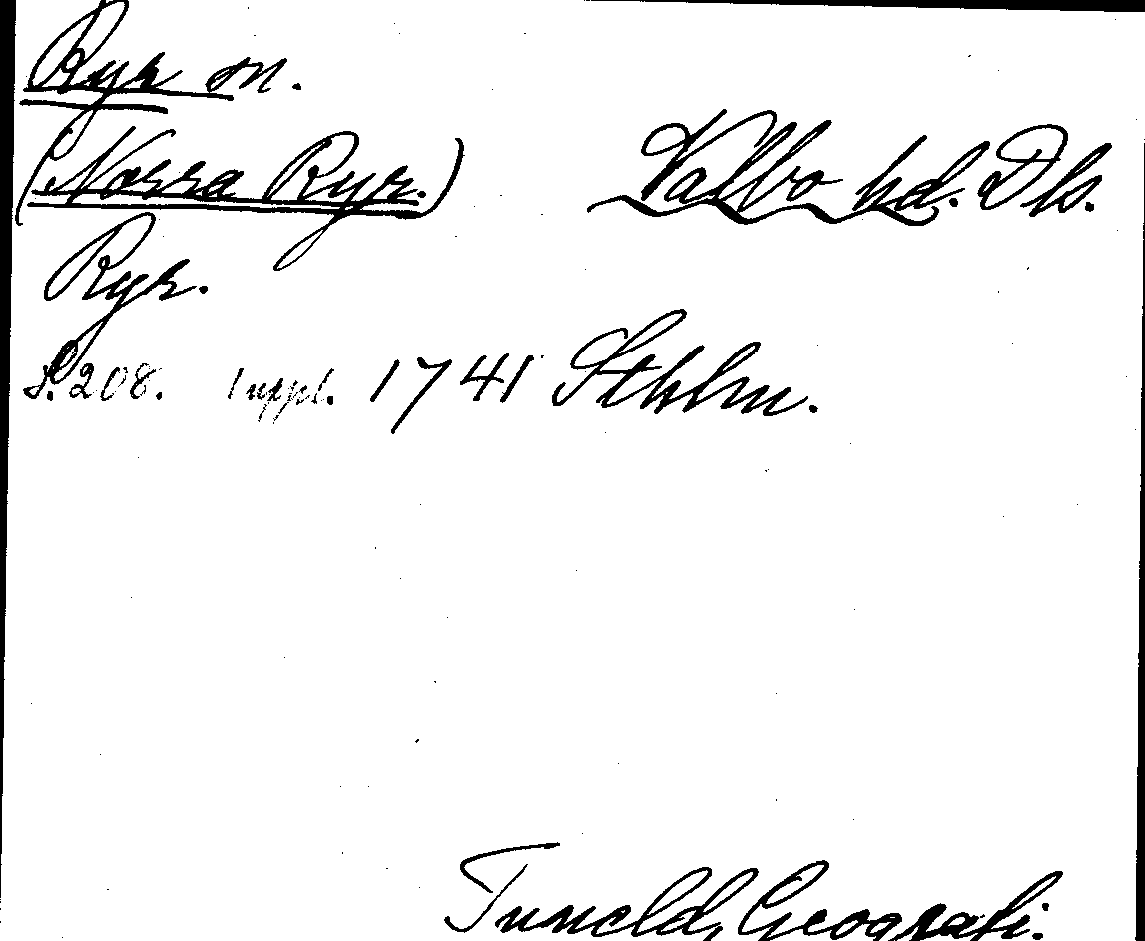 Ryr sn.
(Norra Ryr.) Valbo hd. Dls.
Ryr.
S. 208. Uppl. 1741 Sthlm.
Tuneld, Geografi.